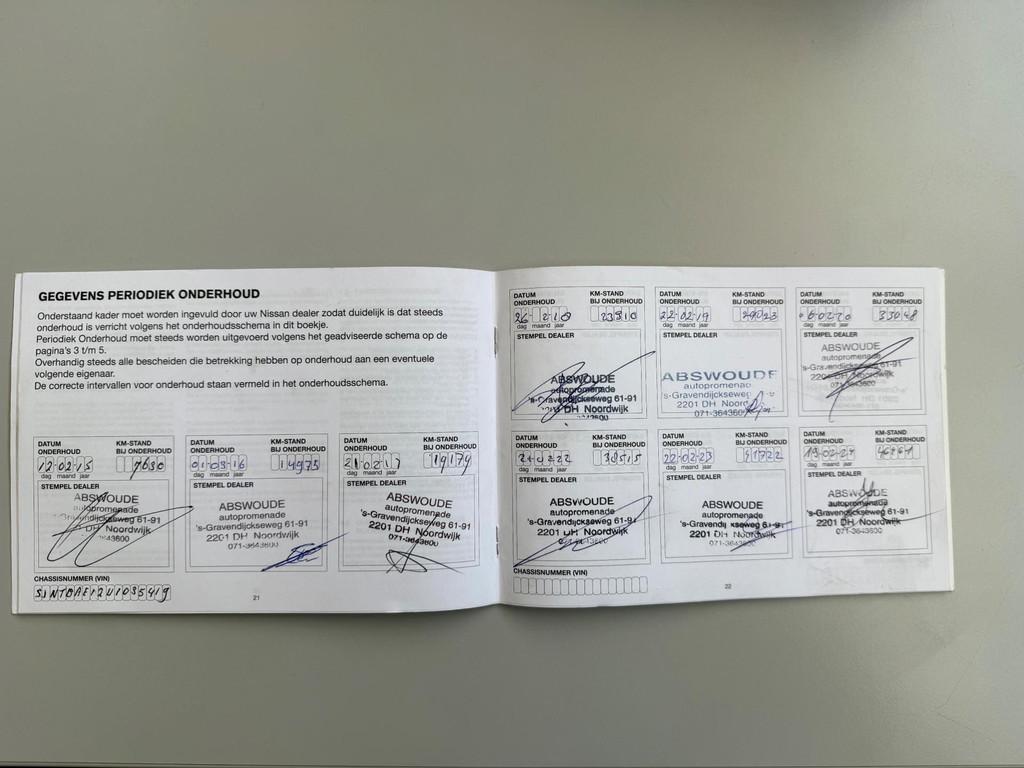 GEGEVENS PERIODIEK ONDERHOUD
Onderstaand kader moet worden ingevuld door uw Nissan dealer zodat duidelijk is dat steeds
onderhoud is verricht volgens het onderhoudsschema in dit boekje.
Periodiek Onderhoud moet steeds worden uitgevoerd volgens het geadviseerde schema op de
pagina's 3 t/m 5.
Overhandig steeds alle bescheiden die betrekking hebben op onderhoud aan een eventuele
volgende eigenaar.
De correcte intervallen voor onderhoud staan vermeld in het onderhoudsschema.
DATUM ONDERHOUD
KM-STAND BIJ ONDERHOUD
12-02-15
7680
dag maand jaar
STEMPEL DEALER
ABSWOUDE
autopromenade
's-Gravendijckseweg 61-91
DH Noordwijk
3643600
DATUM ONDERHOUD
KM-STAND BIJ ONDERHOUD
01-03-16
14975
dag maand jaar
STEMPEL DEALER
ABSWOUDE
autopromenade
's-Gravendijckseweg 61-91
2201 DH Noordwijk
071-3643600
DATUM ONDERHOUD
KM-STAND BIJ ONDERHOUD
210217
19174
dag maand jaar
STEMPEL DEALER
ABSWOUDE
autopromenade
's-Gravendijckseweg 61-91
2201 DH Noordwijk
071-3643600
CHASSISNUMMER (VIN)
21
DATUM ONDERHOUD
KM-STAND BIJ ONDERHOUD
23810
dag maand jaar
STEMPEL DEALER
ABSWOUDE
autopromenade
's-Gravendijckseweg 61-91
DH Noordwijk
DATUM ONDERHOUD
KM-STAND BIJ ONDERHOUD
22-02-19
29023
dag maand jaar
STEMPEL DEALER
ABSWOUDE
autopromenade
's-Gravendijckseweg 61-91
2201 DH Noordwijk
071-3643600
DATUM ONDERHOUD
KM-STAND BIJ ONDERHOUD
33048
dag maand jaar
STEMPEL DEALER
ABSWOUDE
autopromenade
's-Gravendijckseweg 61-91
2201 DH Noordwijk
071-3643600
DATUM ONDERHOUD
KM-STAND BIJ ONDERHOUD
38515
dag maand jaar
STEMPEL DEALER
ABSWOUDE
autopromenade
's-Gravendijckseweg 61-91
2201 DH Noordwijk
071-3643600
DATUM ONDERHOUD
KM-STAND BIJ ONDERHOUD
22-02-23
41722
dag maand jaar
STEMPEL DEALER
ABSWOUDE
autopromenade
's-Gravendijckseweg 61-91
2201 DH Noordwijk
071-3643600
DATUM ONDERHOUD
KM-STAND BIJ ONDERHOUD
19-02-24
dag maand jaar
STEMPEL DEALER
ABSWOUDE
autopromenade
's-Gravendijckseweg 61-91
2201 DH Noordwijk
071-3643600
CHASSISNUMMER (VIN)
22